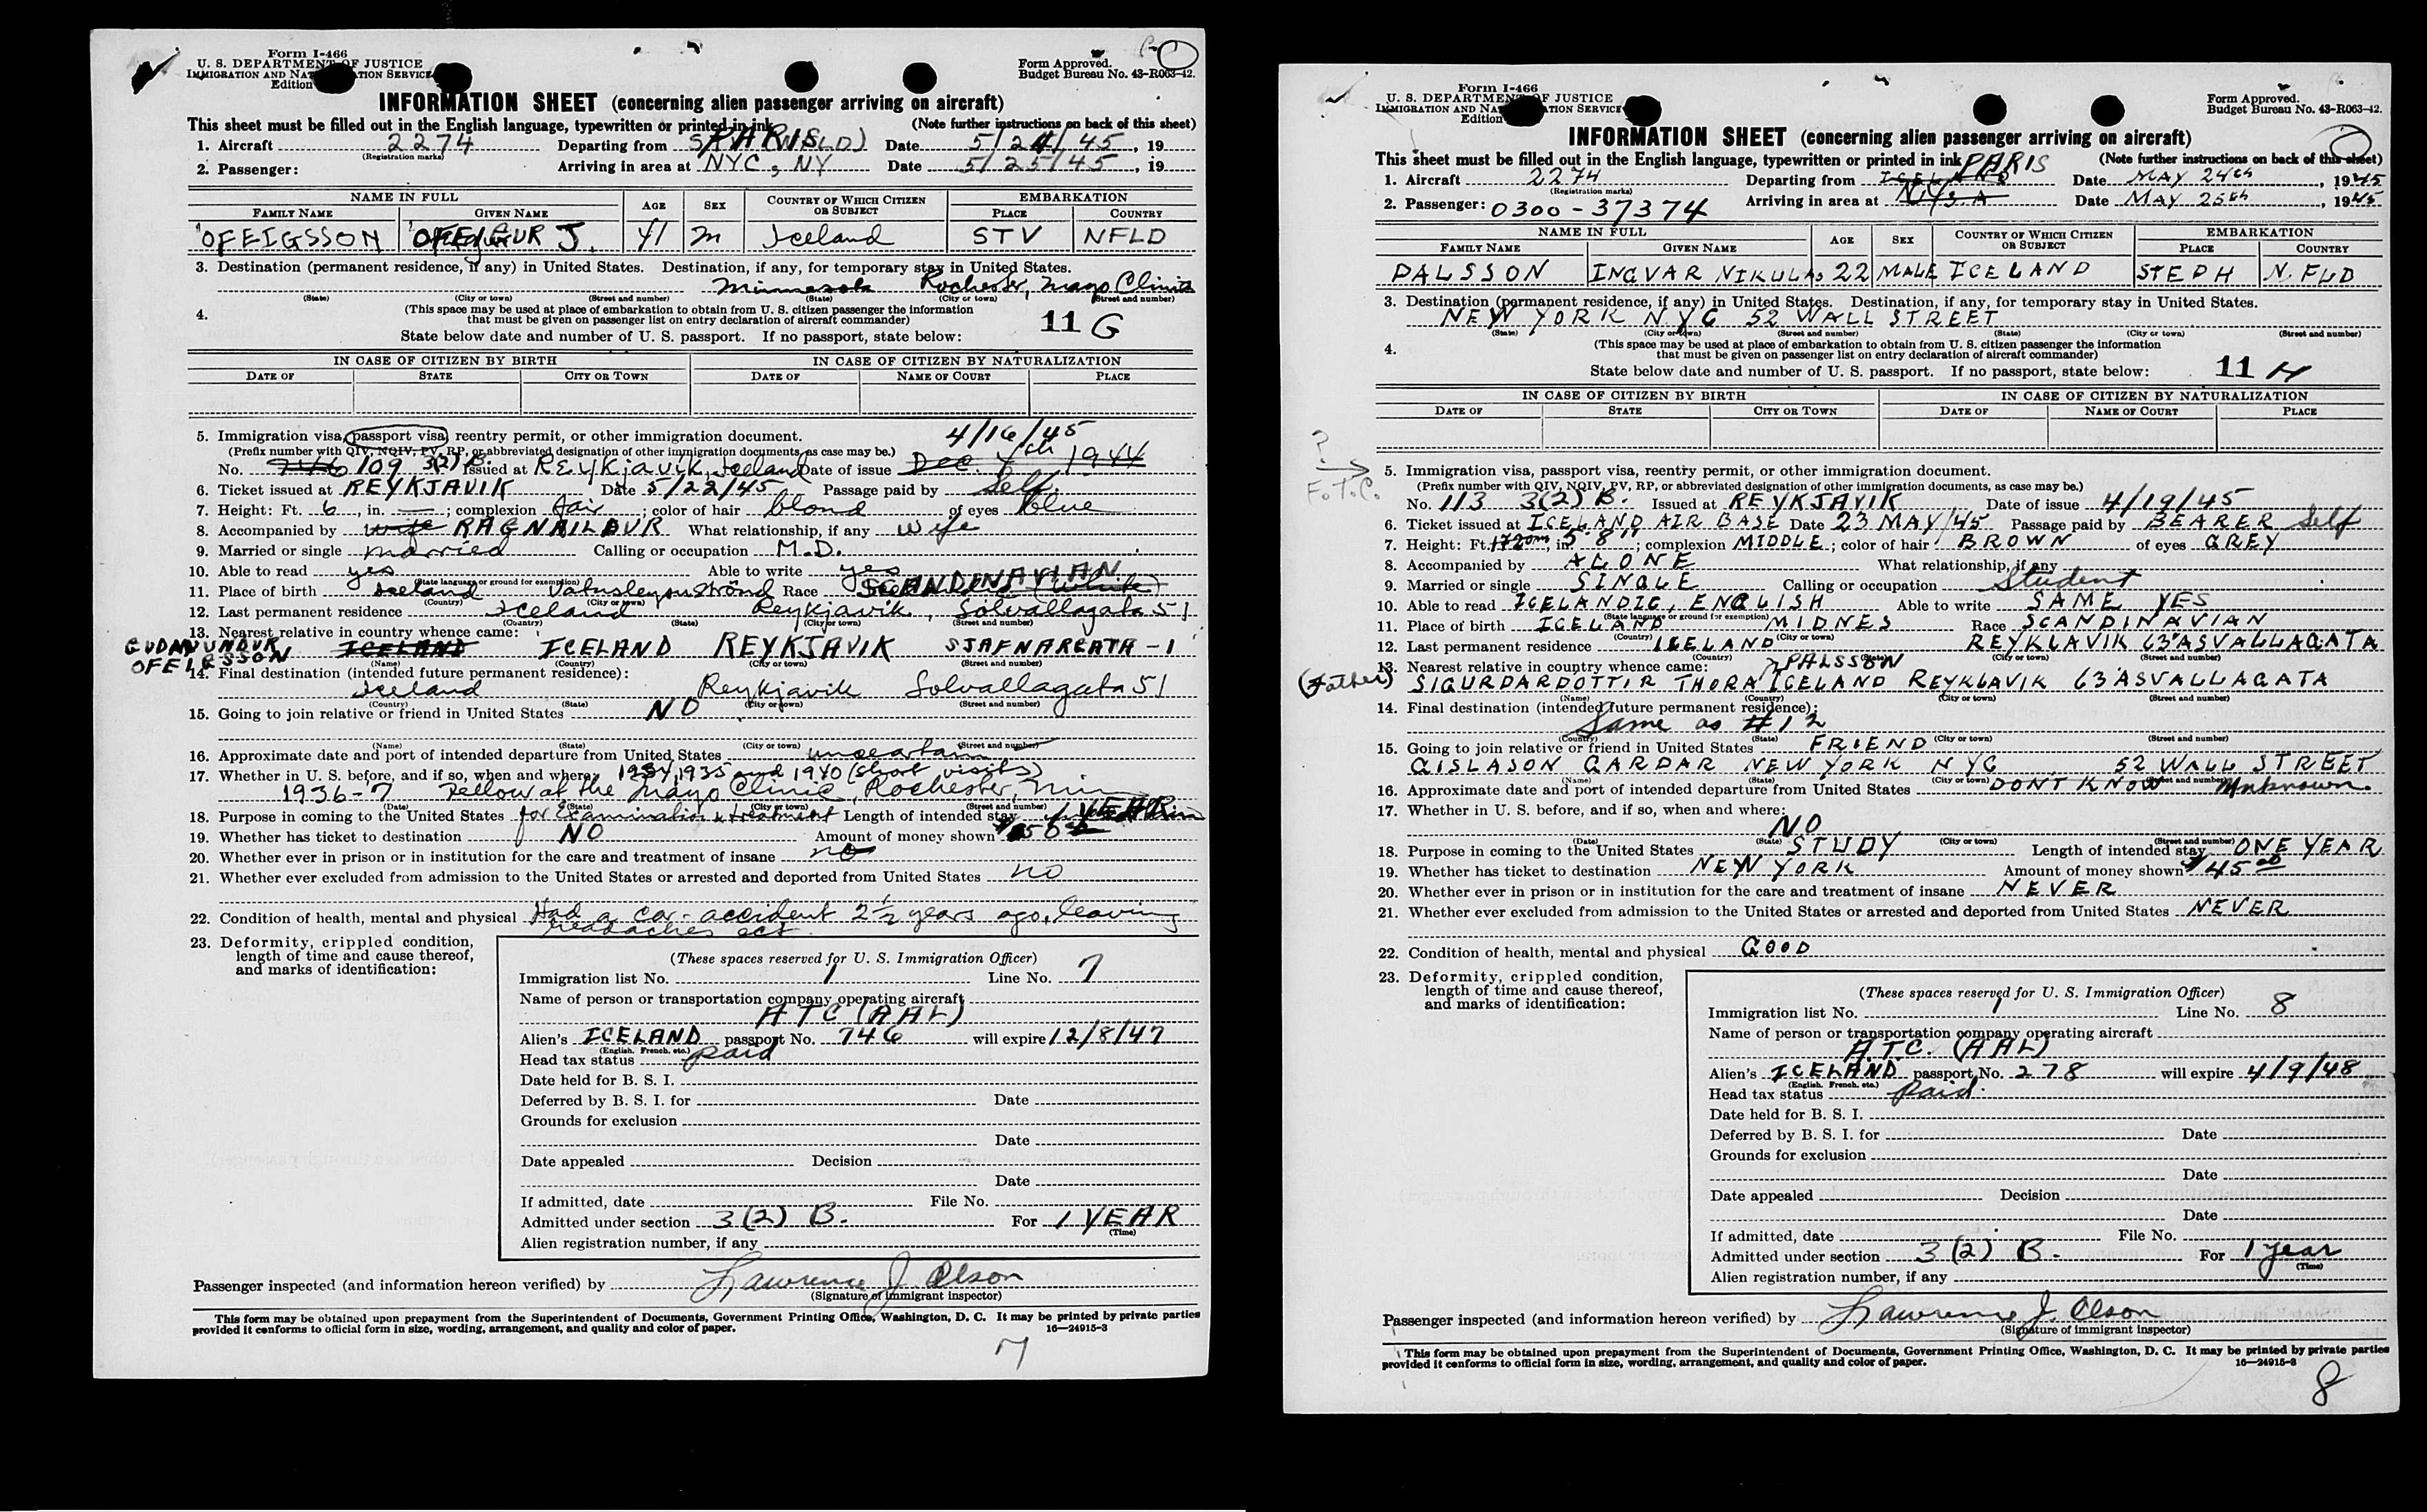 Form I-466
U. S. DEPARTMENT OF JUSTICE
IMMIGRATION AND NATURALIZATION SERVICE
Edition
Form Approved.
Budget Bureau No. 43-R063-42.
INFORMATION SHEET (concerning alien passenger arriving on aircraft)
This sheet must be filled out in the English language, typewritten or printed in ink (Note further instructions on back of this sheet)
1. Aircraft 2274 Departing from PARIS Date 5/24/45, 19
(Registration marks)
2. Passenger: Arriving in area at NYC, NY Date 5/25/45, 19
NAME IN FULL AGE SEX COUNTRY OF WHICH CITIZEN OR SUBJECT EMBARKATION
FAMILY NAME GIVEN NAME PLACE COUNTRY
OFEIGSSON OFEIGUR J. 41 M Iceland STV NFLD
3. Destination (permanent residence, if any) in United States. Destination, if any, for temporary stay in United States.
Minnesota Rochester, Mayo Clinic
(State) (City or town) (Street and number) (State) (City or town) (Street and number)
4. (This space may be used at place of embarkation to obtain from U. S. citizen passenger the information
that must be given on passenger list on entry declaration of aircraft commander) 11 G
State below date and number of U. S. passport. If no passport, state below:
IN CASE OF CITIZEN BY BIRTH IN CASE OF CITIZEN BY NATURALIZATION
DATE OF STATE CITY OR TOWN DATE OF NAME OF COURT PLACE
5. Immigration visa, passport visa, reentry permit, or other immigration document. 4/16/45
(Prefix number with QIV, NQIV, PV, RP, or abbreviated designation of other immigration documents, as case may be.)
No. 746 109 3(2) B. Issued at REYKjAVIK, Iceland Date of issue Dec. 4th 1944
6. Ticket issued at REYKJAVIK Date 5/22/45 Passage paid by Self
7. Height: Ft. 6, in. —; complexion fair; color of hair blond of eyes blue
8. Accompanied by wife RAGNAILDUR What relationship, if any wife
9. Married or single married Calling or occupation M.D.
10. Able to read yes Able to write yes
(State language or ground for exemption)
11. Place of birth Iceland Vatnsleysuströnd Race SCANDINAVIAN (White)
(Country) (City or town)
12. Last permanent residence Iceland Reykjavik, Sólvallagata 51
(Country) (State) (City or town) (Street and number)
13. Nearest relative in country whence came:
GUDMUNDUR OFEIGSSON ICELAND ICELAND REYKJAVIK SJAFNARGATA - 1
(Name) (Country) (City or town) (Street and number)
14. Final destination (intended future permanent residence):
Iceland Reykjavik Solvallagata 51
(Country) (State) (City or town) (Street and number)
15. Going to join relative or friend in United States NO
(Name) (State) (City or town) (Street and number)
16. Approximate date and port of intended departure from United States uncertain
17. Whether in U. S. before, and if so, when and where: 1934, 1935 and 1940 (short visits)
1936-7 Fellow at the Mayo Clinic, Rochester, Min
(Date) (State) (City or town) (Street and number)
18. Purpose in coming to the United States for Examination & treatment Length of intended stay 1 YEAR
19. Whether has ticket to destination NO Amount of money shown $50
20. Whether ever in prison or in institution for the care and treatment of insane no
21. Whether ever excluded from admission to the United States or arrested and deported from United States no
22. Condition of health, mental and physical Had a car-accident 2½ years ago, leaving
headaches ect.
23. Deformity, crippled condition,
length of time and cause thereof,
and marks of identification:
(These spaces reserved for U. S. Immigration Officer)
Immigration list No. 1 Line No. 7
Name of person or transportation company operating aircraft
ATC (AAL)
Alien's ICELAND passport No. 746 will expire 12/8/47
(English, French, etc.)
Head tax status paid
Date held for B. S. I.
Deferred by B. S. I. for Date
Grounds for exclusion
Date
Date appealed Decision
Date
If admitted, date File No.
Admitted under section 3(2) B. For 1 YEAR
(Time)
Alien registration number, if any
Passenger inspected (and information hereon verified) by Lawrence J. Olson
(Signature of immigrant inspector)
This form may be obtained upon prepayment from the Superintendent of Documents, Government Printing Office, Washington, D. C. It may be printed by private parties
provided it conforms to official form in size, wording, arrangement, and quality and color of paper. 16—24915-3
7
Form I-466
U. S. DEPARTMENT OF JUSTICE
IMMIGRATION AND NATURALIZATION SERVICE
Edition
Form Approved.
Budget Bureau No. 43-R063-42.
INFORMATION SHEET (concerning alien passenger arriving on aircraft)
This sheet must be filled out in the English language, typewritten or printed in ink (Note further instructions on back of this sheet)
1. Aircraft 2274 Departing from ICELAND PARIS Date MAY 24th, 1945
(Registration marks)
2. Passenger: 0300-37374 Arriving in area at Date MAY 25th, 1945
NAME IN FULL AGE SEX COUNTRY OF WHICH CITIZEN OR SUBJECT EMBARKATION
FAMILY NAME GIVEN NAME PLACE COUNTRY
PALSSON INGVAR NIKULAS 22 MALE ICELAND STEPH N. FLD
3. Destination (permanent residence, if any) in United States. Destination, if any, for temporary stay in United States.
NEW YORK NYC 52 WALL STREET
(State) (City or town) (Street and number) (State) (City or town) (Street and number)
4. (This space may be used at place of embarkation to obtain from U. S. citizen passenger the information
that must be given on passenger list on entry declaration of aircraft commander)
State below date and number of U. S. passport. If no passport, state below: 11 H
IN CASE OF CITIZEN BY BIRTH IN CASE OF CITIZEN BY NATURALIZATION
DATE OF STATE CITY OR TOWN DATE OF NAME OF COURT PLACE
?
F.T.C.
5. Immigration visa, passport visa, reentry permit, or other immigration document.
(Prefix number with QIV, NQIV, PV, RP, or abbreviated designation of other immigration documents, as case may be.)
No. 113 3(2) B. Issued at REYKJAVIK Date of issue 4/19/45
6. Ticket issued at ICELAND AIR BASE Date 23 MAY/45 Passage paid by BEARER Self
7. Height: Ft. 172cm, in. 5'8"; complexion MIDDLE; color of hair BROWN of eyes GREY
8. Accompanied by ALONE What relationship, if any
9. Married or single SINGLE Calling or occupation Student
10. Able to read ICELANDIC, ENGLISH Able to write SAME YES
(State language or ground for exemption)
11. Place of birth ICELAND MIDNES Race SCANDINAVIAN
(Country) (City or town)
12. Last permanent residence ICELAND REYKLAVIK 63 ASVALLAGATA
(Country) (State) (City or town) (Street and number)
13. Nearest relative in country whence came: PALSSON
(Father) SIGURDARDOTTIR THORA ICELAND REYKLAVIK 63 ASVALLAGATA
(Name) (Country) (City or town) (Street and number)
14. Final destination (intended future permanent residence):
Same as #12
(Country) (State) (City or town) (Street and number)
15. Going to join relative or friend in United States FRIEND
GISLASON GARDAR NEW YORK NYC 52 WALL STREET
(Name) (State) (City or town) (Street and number)
16. Approximate date and port of intended departure from United States DONT KNOW Unknown.
17. Whether in U. S. before, and if so, when and where:
NO
(Date) (State) (City or town) (Street and number)
18. Purpose in coming to the United States STUDY Length of intended stay ONE YEAR
19. Whether has ticket to destination NEW YORK Amount of money shown $45.00
20. Whether ever in prison or in institution for the care and treatment of insane NEVER
21. Whether ever excluded from admission to the United States or arrested and deported from United States NEVER
22. Condition of health, mental and physical GOOD
23. Deformity, crippled condition,
length of time and cause thereof,
and marks of identification:
(These spaces reserved for U. S. Immigration Officer)
Immigration list No. 1 Line No. 8
Name of person or transportation company operating aircraft
A.T.C. (AAL)
Alien's ICELAND passport No. 278 will expire 4/9/48
(English, French, etc.)
Head tax status paid.
Date held for B. S. I.
Deferred by B. S. I. for Date
Grounds for exclusion
Date
Date appealed Decision
Date
If admitted, date File No.
Admitted under section 3(2) B. For 1 year
(Time)
Alien registration number, if any
Passenger inspected (and information hereon verified) by Lawrence J. Olson
(Signature of immigrant inspector)
This form may be obtained upon prepayment from the Superintendent of Documents, Government Printing Office, Washington, D. C. It may be printed by private parties
provided it conforms to official form in size, wording, arrangement, and quality and color of paper. 16—24915-3
8